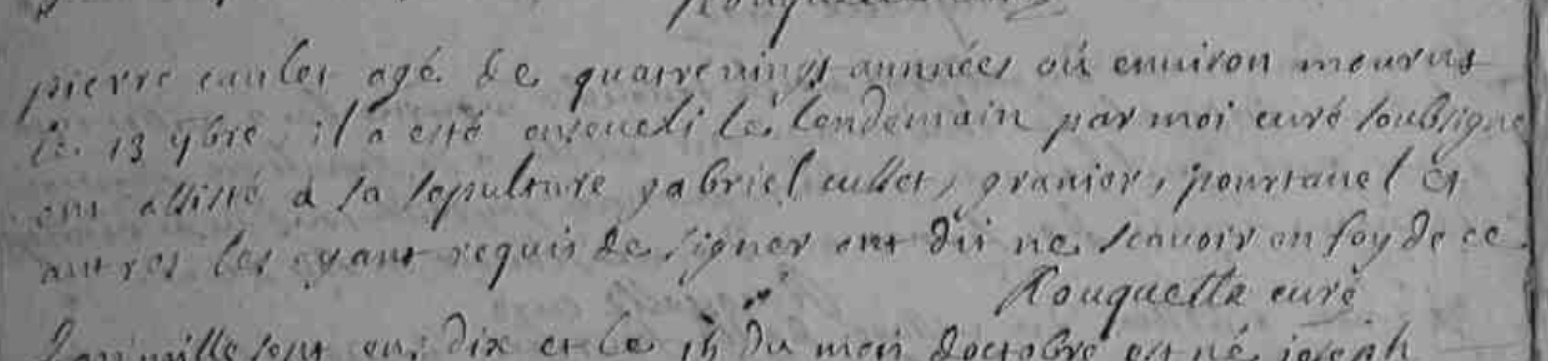 pierre caulet agé de quatrevingt années ou environ mourut
le 13 9bre il a esté enseueli le lendemain par moi curé soubsigné
ont assisté a sa sepulture gabriel cullet, granier, pourtauel et
autres les ayant requis de signer ont dit ne scauoir en foy de ce
Rouquette curé
Lan mille sept cens dix et le 15 du mois doctobre est né joseph